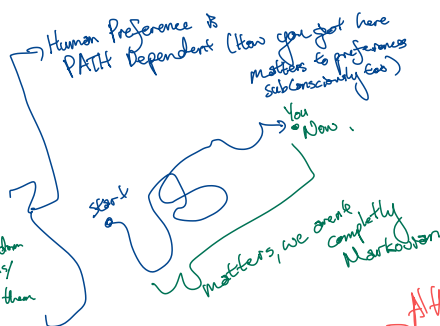 Human Preference is
PATH Dependent (How you got here
matters to preferences
subconsciously too)
You
Now.
start
matters, we aren't
completly
Markovian
them